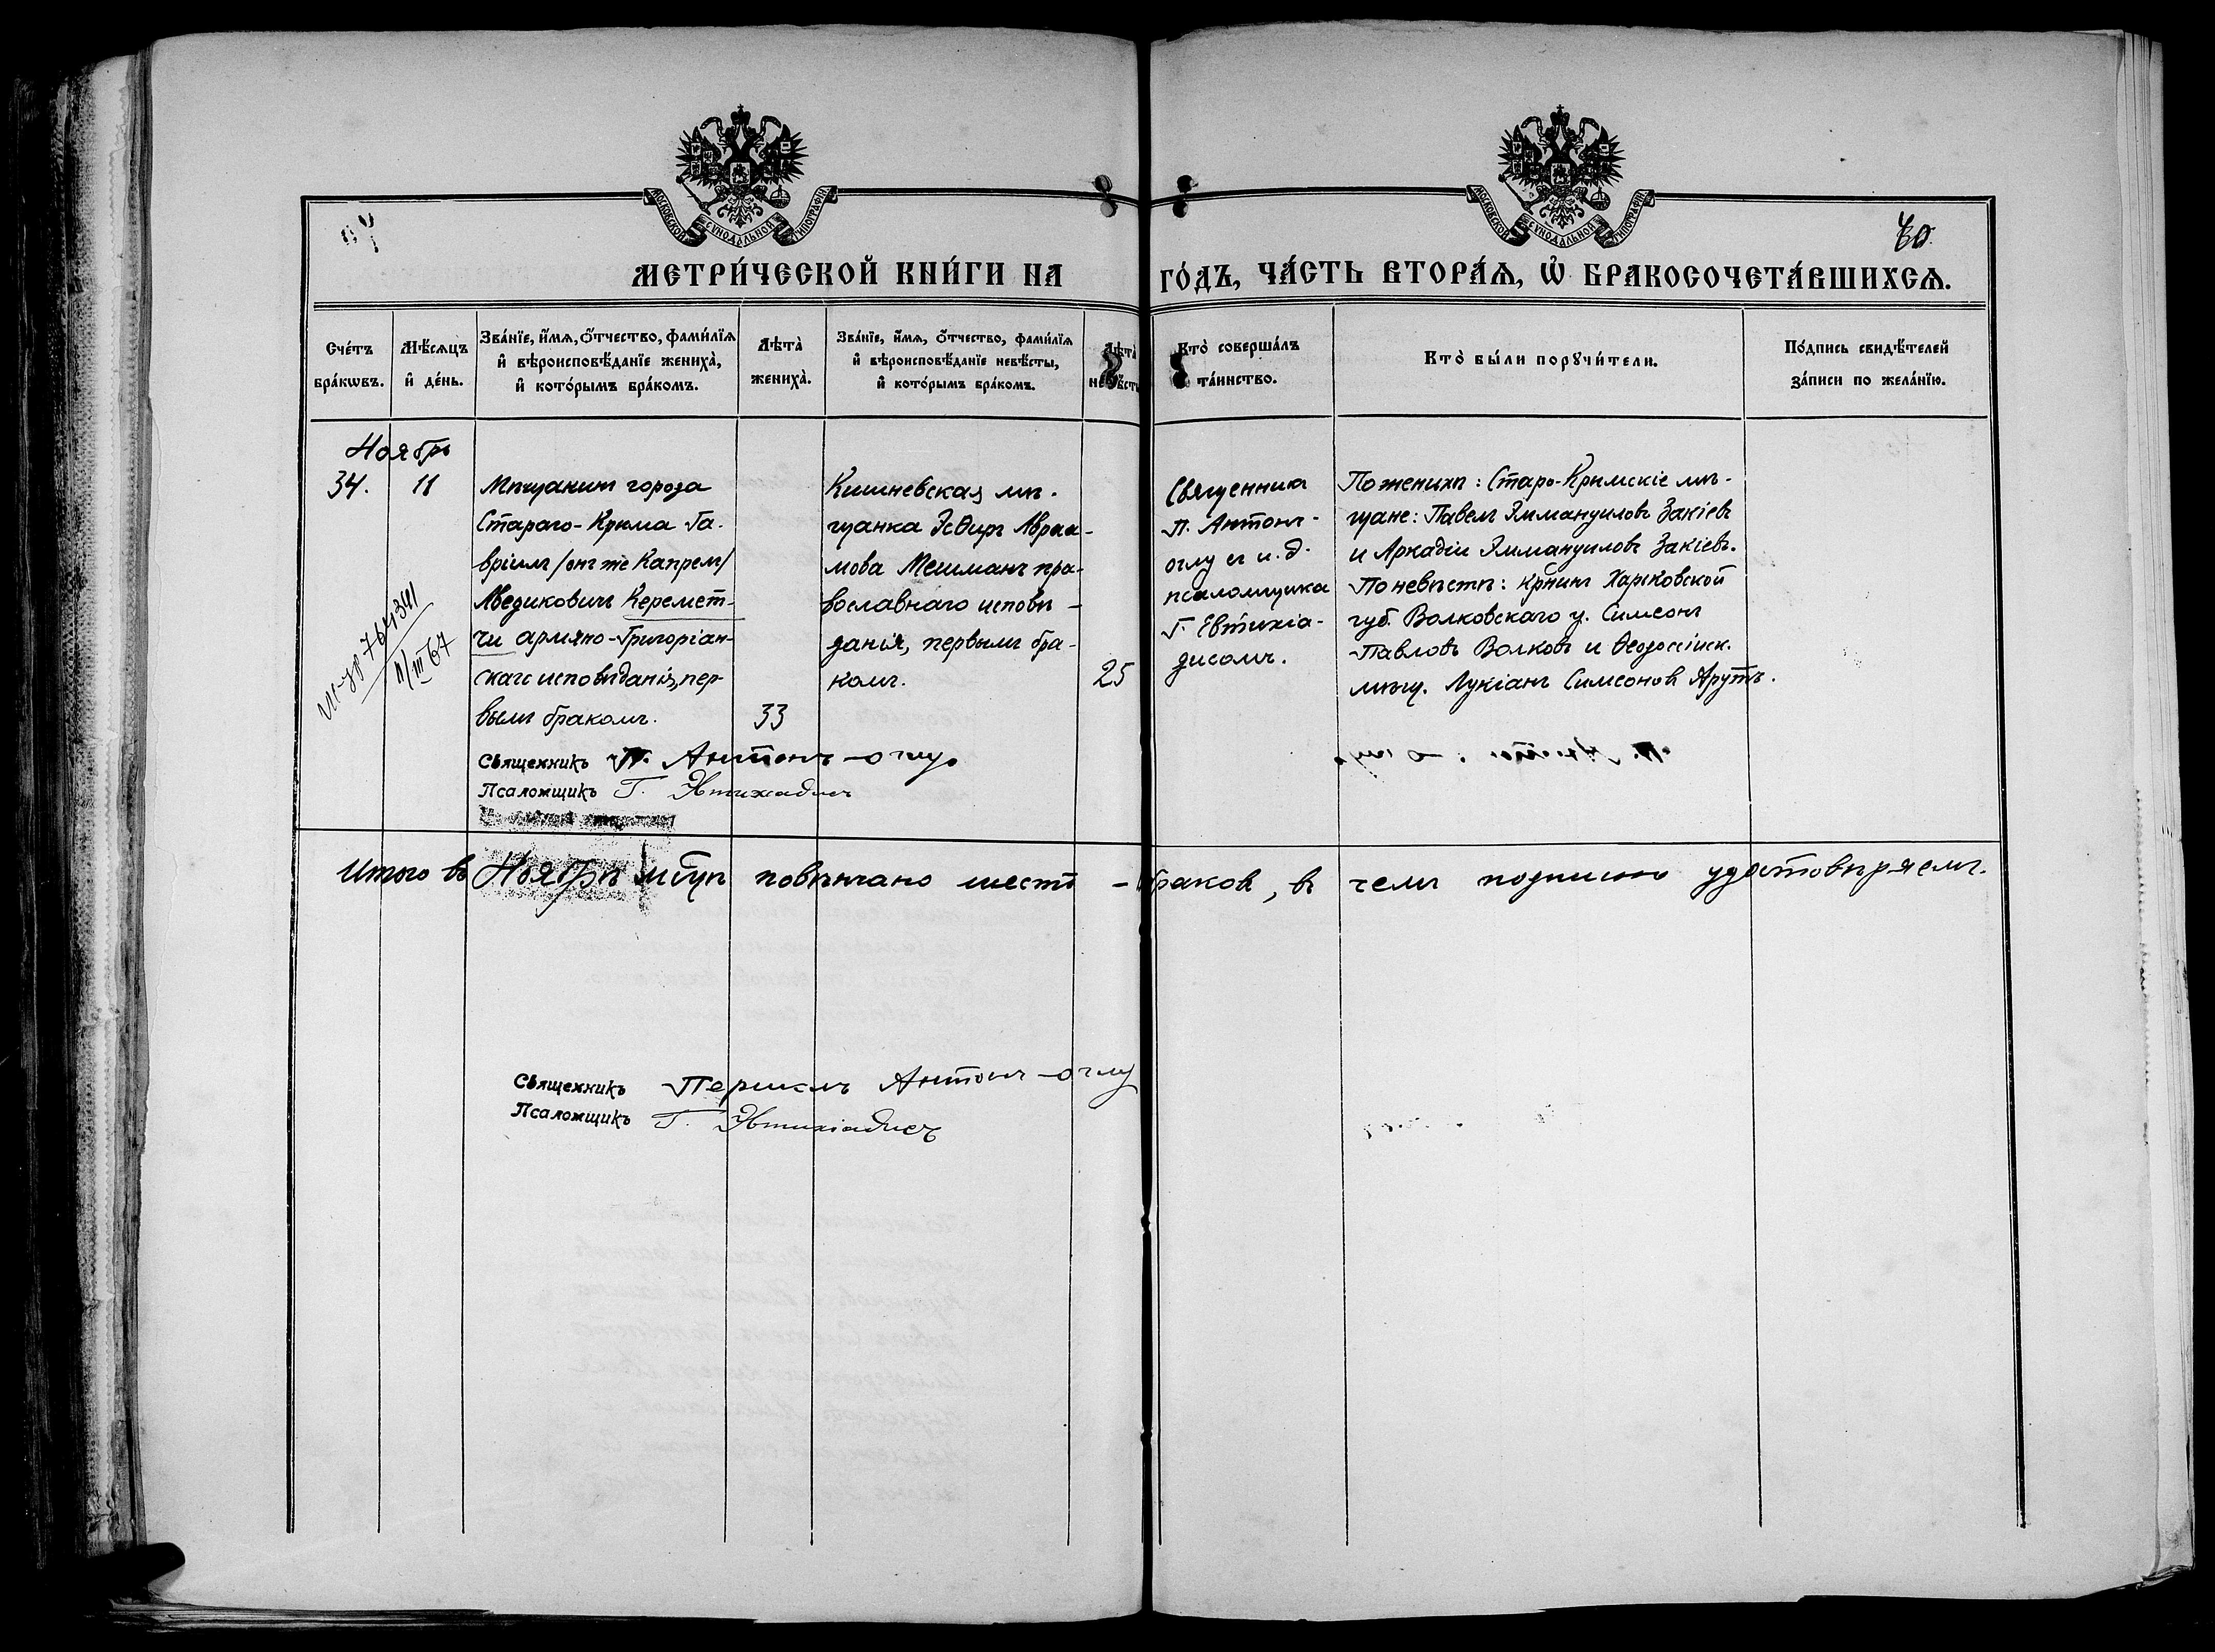 МОСКОВСКОЙ СѴНОДАЛЬНОЙ ТИПОГРАФІИ
МОСКОВСКОЙ СѴНОДАЛЬНОЙ ТИПОГРАФІИ
МЕТРИ́ЧЕСКОЙ КНИ́ГИ НА ГО́ДЪ, ЧА́СТЬ ВТОРА́Ѧ, Ѽ БРАКОСОЧЕТА́ВШИХСѦ.
Сче́тъ
бра́кѡвъ.
Мѣ́сѧцъ
и҆ де́нь.
Зва́нїе, и҆́мѧ, ѻ҆́тчество, фами́лїѧ
и҆ вѣроисповѣ́данїе жениха̀,
и҆ кото́рымъ бра́комъ.
Лѣта̀
жениха̀.
Зва́нїе, и҆́мѧ, ѻ҆́тчество, фами́лїѧ
и҆ вѣроисповѣ́данїе невѣ́сты,
и҆ кото́рымъ бра́комъ.
Лѣта̀
невѣ́сты
Кто̀ соверша́лъ
та́инство.
Кто̀ бы́ли порꙋчи́тели.
По́дпись свидѣ́телей
за́писи по жела́нїю.
Ноябрь
34.
11
Мѣщанинъ города
Стараго-Крыма Га-
вріилъ /онъ же Капрел/
Аведиковичъ Керемет-
чи армяно-Григоріан-
скаго исповѣданія, пер-
вымъ бракомъ.
33
Кишневская мѣ-
щанка Эсѳирь Авраа-
мова Мешманъ пра-
вославнаго исповѣ-
данія, первымъ бра-
комъ.
25
Священника
П. Антонъ-
оглу съ и. д.
псаломщика
Г. Евтихіа-
дисомъ.
По женихѣ: Старо-Крымскіе мѣ-
щане: Павелъ Эммануиловъ Закіевъ
и Аркадій Эммануиловъ Закіевъ.
По невѣстѣ: кр-нинъ Харьковской
губ. Волковскаго у. Симеонъ
Павловъ Волковъ и Ѳеодосійск.
мѣщ. Лукіанъ Симеоновъ Арутъ.
764341
11/III 67
Священникъ П. Антонъ-оглу
Псаломщикъ Г. Эвтихіадисъ
Итого въ Ноябрѣ м-цѣ повѣнчано шесть - браковъ, въ чемъ подписью удостовѣряемъ.
Священникъ Периклъ Антонъ-оглу
Псаломщикъ Г. Эвтихіадисъ